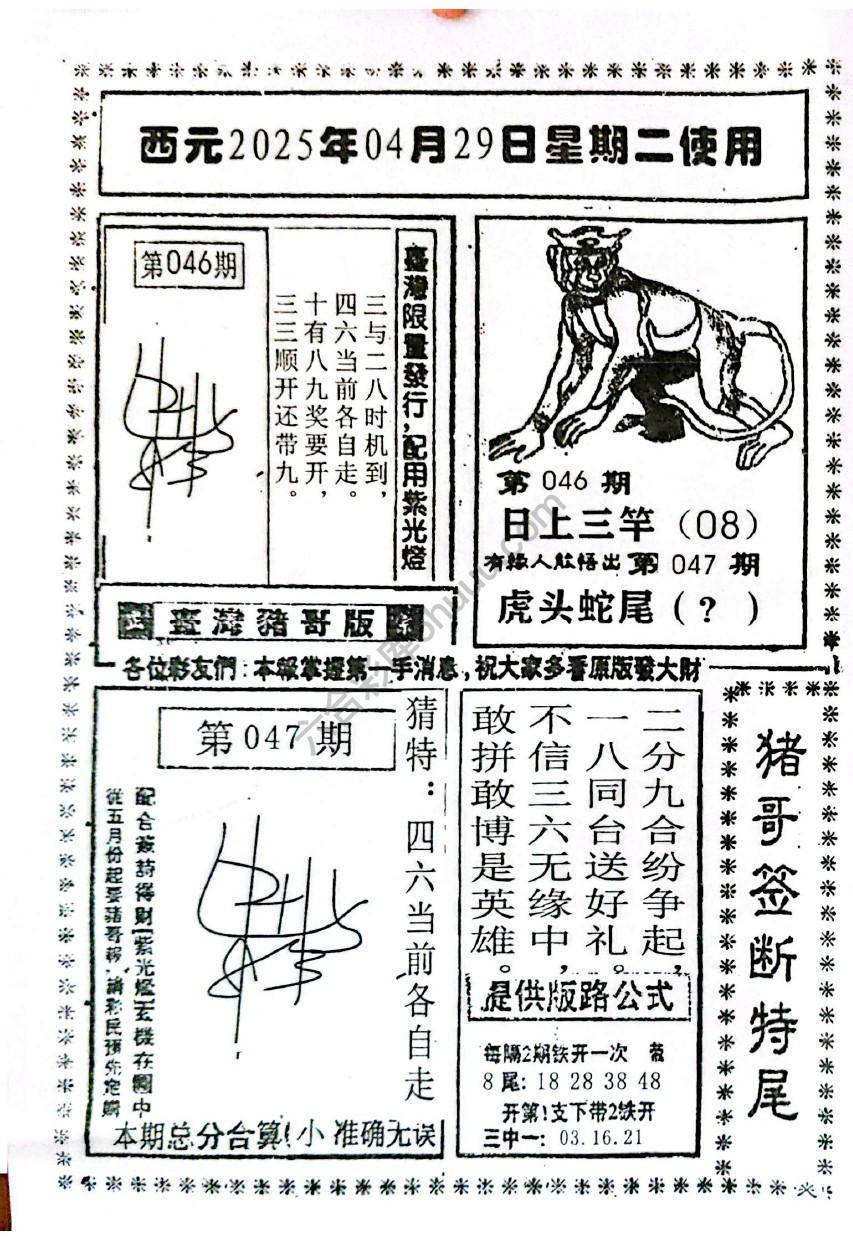 西元2025年04月29日星期二使用
第046期
三与二八时机到，
四六当前各自走。
十有八九奖要开，
三三顺开还带九。
臺灣限量發行，配用紫光燈
臺灣豬哥版
第 046 期
日上三竿（08）
有緣人能悟出 第 047 期
虎头蛇尾（？）
各位彩友們：本報掌握第一手消息，祝大家多看原版發大財
第047期
猜特：四六当前各自走
配合簽詩得財[紫光燈]玄機在圖中
從五月份起要豬哥報，請彩民預先定購
本期总分合算!小 准确无误
二分九合纷争起，
一八同台送好礼。
不信三六无缘中，
敢拼敢博是英雄。
提供版路公式
每隔2期铁开一次 带
8尾: 18 28 38 48
开第!支下带2铁开
三中一: 03.16.21
猪哥签断特尾
六合彩库